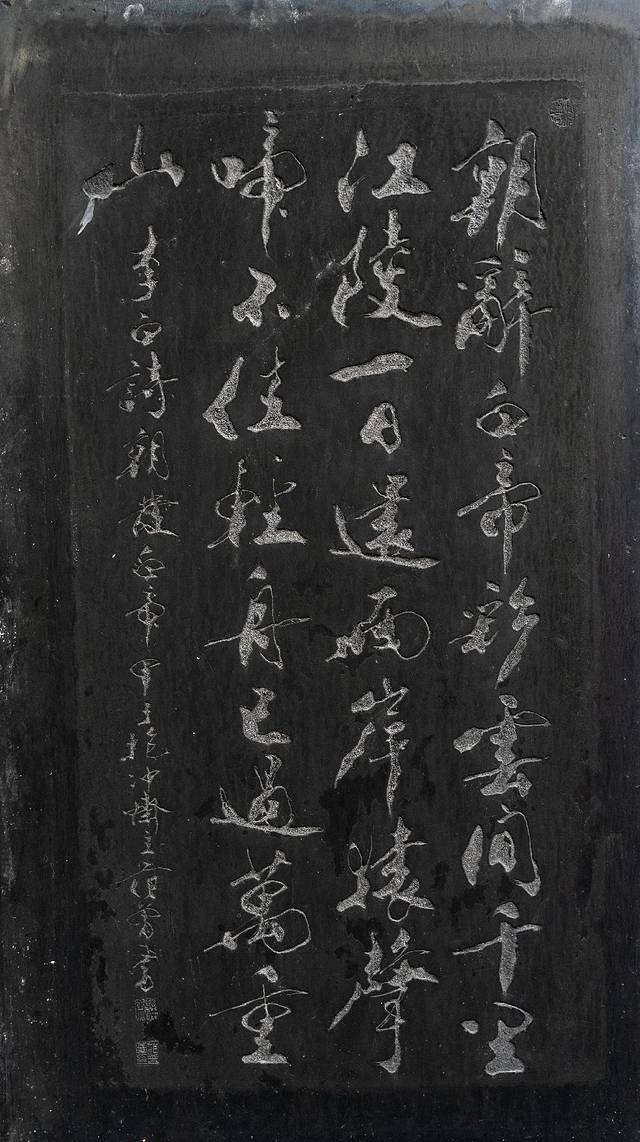 朝辭白帝彩雲間千里
江陵一日還兩岸猿聲
啼不住輕舟已過萬重
山
李白詩朝發白帝甲子抱冲齋主范曾書